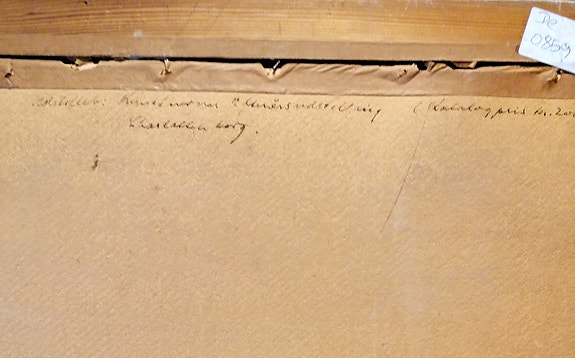 De
0859
Kunstnernes Efterårsudstilling (Katalogpris kr. 200
Charlottenborg.